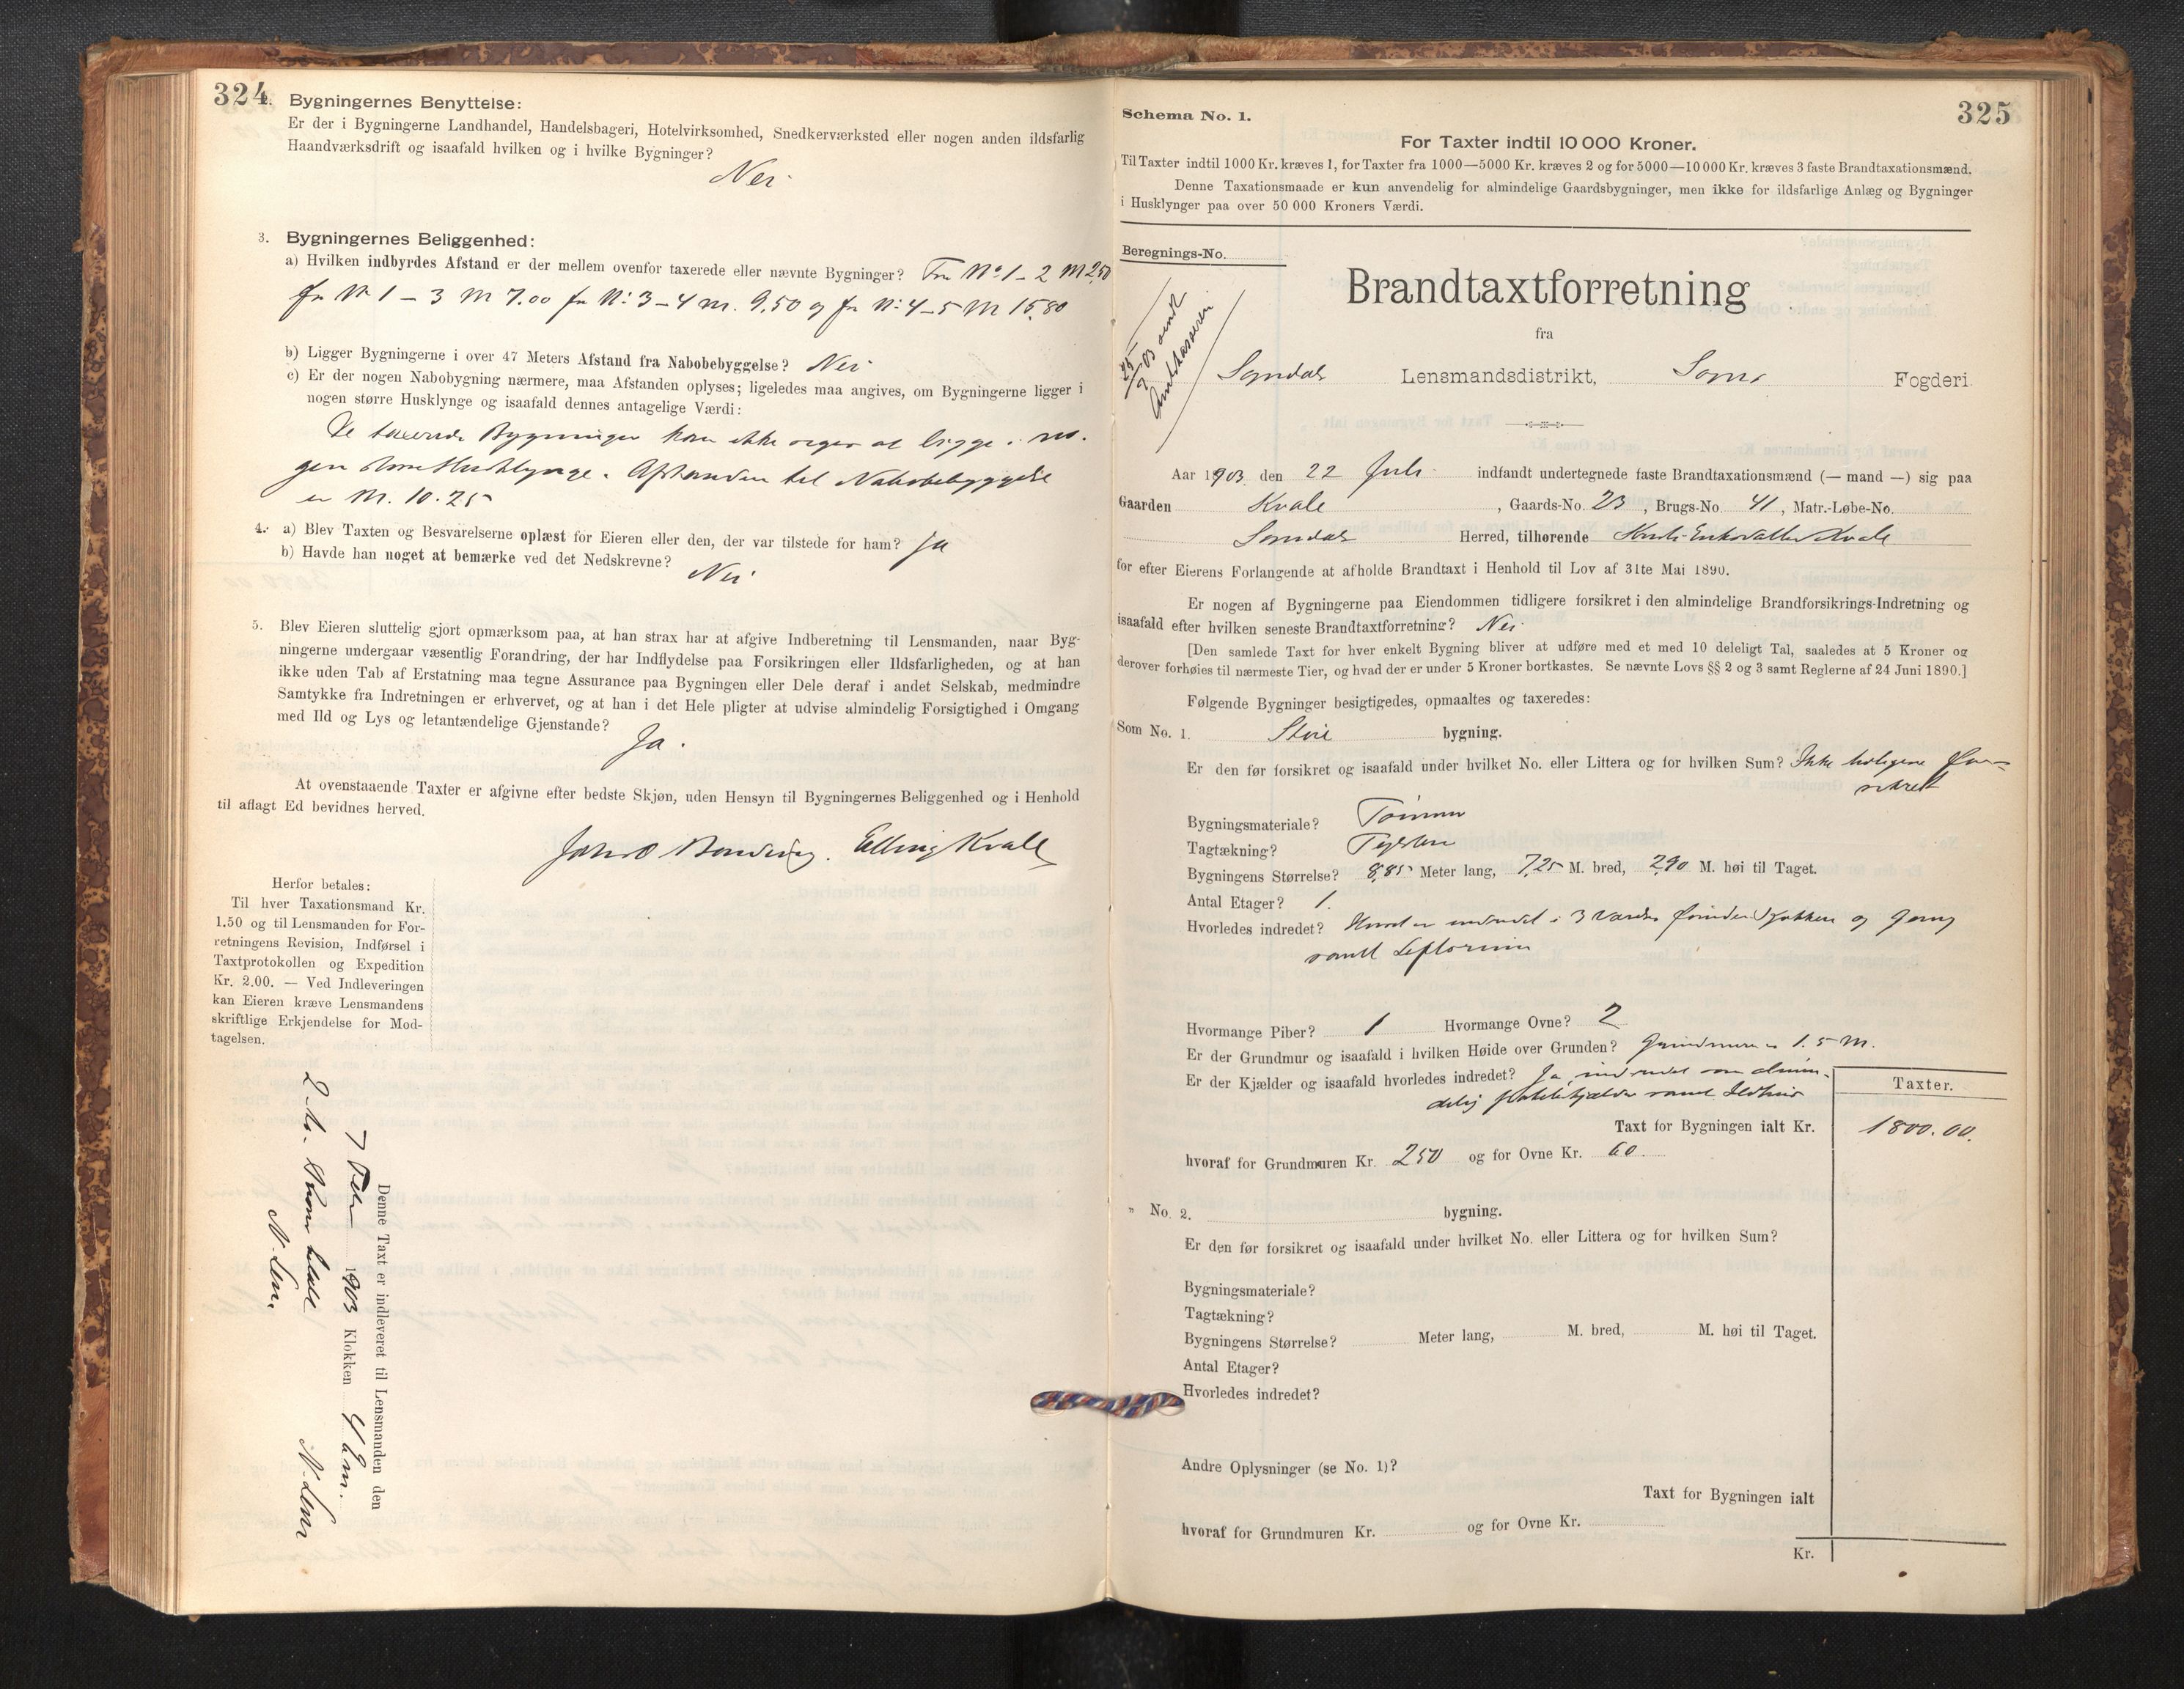 324
2. Bygningernes Benyttelse:
Er der i Bygningerne Landhandel, Handelsbageri, Hotelvirksomhed, Snedkerværksted eller nogen anden ildsfarlig
Haandværksdrift og isaafald hvilken og i hvilke Bygninger?
Nei
3. Bygningernes Beliggenhed:
a) Hvilken indbyrdes Afstand er der mellem ovenfor taxerede eller nævnte Bygninger? Fra No 1 – 2 M 2,50
fra No 1 – 3 M 7.00 fra No 3 – 4 M. 9,50 og fra No 4 – 5 M 15,80
b) Ligger Bygningerne i over 47 Meters Afstand fra Nabobebyggelse? Nei
c) Er der nogen Nabobygning nærmere, maa Afstanden oplyses; ligeledes maa angives, om Bygningerne ligger i
nogen større Husklynge og isaafald dennes antagelige Værdi:
De taxerede Bygninger kan ikke siges at ligge i no-
gen større Husklynge. Afstanden til Nabobebyggelse
er M. 10.25
4. a) Blev Taxten og Besvarelserne oplæst for Eieren eller den, der var tilstede for ham? Ja
b) Havde han noget at bemærke ved det Nedskrevne?
Nei
5. Blev Eieren sluttelig gjort opmærksom paa, at han strax har at afgive Indberetning til Lensmanden, naar Byg-
ningerne undergaar væsentlig Forandring, der har Indflydelse paa Forsikringen eller Ildsfarligheden, og at han
ikke uden Tab af Erstatning maa tegne Assurance paa Bygningen eller Dele deraf i andet Selskab, medmindre
Samtykke fra Indretningen er erhvervet, og at han i det Hele pligter at udvise almindelig Forsigtighed i Omgang
med Ild og Lys og letantændelige Gjenstande?
Ja.
At ovenstaaende Taxter er afgivne efter bedste Skjøn, uden Hensyn til Bygningernes Beliggenhed og i Henhold
til aflagt Ed bevidnes herved.
Elling Kvale
Herfor betales:
Til hver Taxationsmand Kr.
1.50 og til Lensmanden for For-
retningens Revision, Indførsel i
Taxtprotokollen og Expedition
Kr. 2.00. — Ved Indleveringen
kan Eieren kræve Lensmandens
skriftlige Erkjendelse for Mod-
tagelsen.
Denne Taxt er indleveret til Lensmanden den
7 1903 Klokken 4
2 Kr.
325
Schema No. 1.
For Taxter indtil 10 000 Kroner.
Til Taxter indtil 1000 Kr. kræves 1, for Taxter fra 1000—5000 Kr. kræves 2 og for 5000—10 000 Kr. kræves 3 faste Brandtaxationsmænd.
Denne Taxationsmaade er kun anvendelig for almindelige Gaardsbygninger, men ikke for ildsfarlige Anlæg og Bygninger
i Husklynger paa over 50 000 Kroners Værdi.
Beregnings-No.
Brandtaxtforretning
fra
Sogndals Lensmandsdistrikt, Sogns Fogderi.
Aar 1903 den 22 Juli indfandt undertegnede faste Brandtaxationsmænd (— mand —) sig paa
Gaarden Kvale, Gaards-No. 23, Brugs-No. 41, Matr.-Løbe-No.
Sogndals Herred, tilhørende Kvale
for efter Eierens Forlangende at afholde Brandtaxt i Henhold til Lov af 31te Mai 1890.
Er nogen af Bygningerne paa Eiendommen tidligere forsikret i den almindelige Brandforsikrings-Indretning og
isaafald efter hvilken seneste Brandtaxtforretning? Nei
[Den samlede Taxt for hver enkelt Bygning bliver at udføre med et med 10 deleligt Tal, saaledes at 5 Kroner og
derover forhøies til nærmeste Tier, og hvad der er under 5 Kroner bortkastes. Se nævnte Lovs §§ 2 og 3 samt Reglerne af 24 Juni 1890.]
Følgende Bygninger besigtigedes, opmaaltes og taxeredes:
Som No. 1. bygning.
Er den før forsikret og isaafald under hvilket No. eller Littera og for hvilken Sum? Ikke tidligere for-
sikret
Bygningsmateriale? Tømmer
Tagtækning? Teglsten
Bygningens Størrelse? 8,85 Meter lang, 7,25 M. bred, 2,90 M. høi til Taget.
Antal Etager? 1.
Hvorledes indredet? Huset er indredet i 3 Værelser Kjøkken og Gang
samt
Hvormange Piber? 1 Hvormange Ovne? 2
Er der Grundmur og isaafald i hvilken Høide over Grunden? Grundmuren er 1.5 M.
Er der Kjælder og isaafald hvorledes indredet? Ja, indredet som almin-
delig Potetkjælder samt Ildhus
Taxter.
Taxt for Bygningen ialt Kr. 1800.00.
hvoraf for Grundmuren Kr. 250 og for Ovne Kr. 60.
" No. 2. bygning.
Er den før forsikret og isaafald under hvilket No. eller Littera og for hvilken Sum?
Bygningsmateriale?
Tagtækning?
Bygningens Størrelse? Meter lang, M. bred, M. høi til Taget.
Antal Etager?
Hvorledes indredet?
Andre Oplysninger (se No. 1)?
Taxt for Bygningen ialt
hvoraf for Grundmuren Kr. og for Ovne Kr.
Kr.